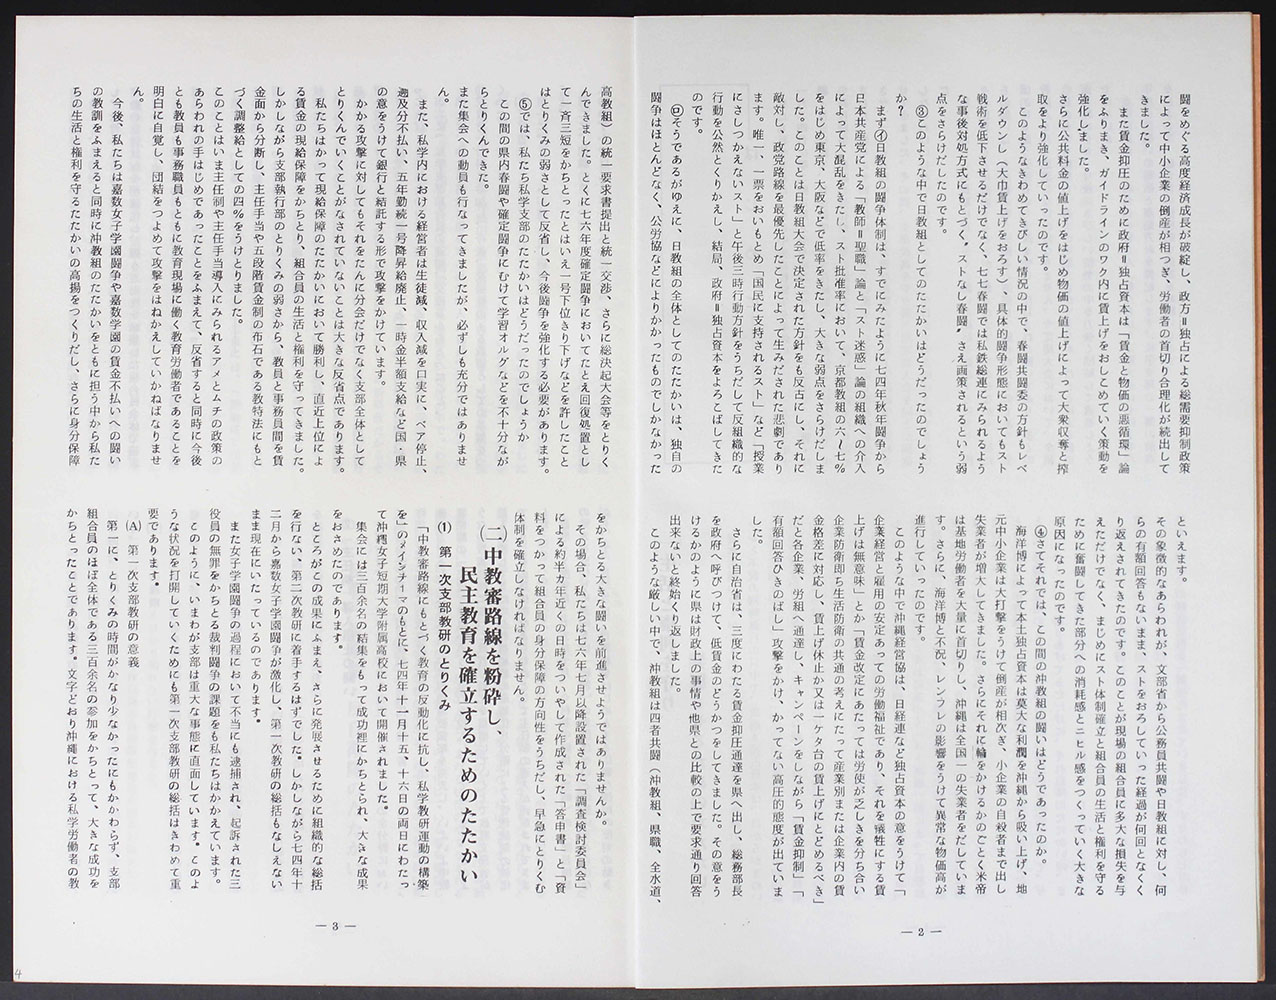 闘をめぐる高度経済成長が破綻し、政方＝独占による総需要抑制政策
によって中小企業の倒産が相つぎ、労働者の首切り合理化が続出して
きました。
また賃金抑圧のために政府＝独占資本は「賃金と物価の悪循環」論
をふりまき、ガイドラインのワク内に賃上げをおしこめていく策動を
強化しました。
さらに公共料金の値上げをはじめ物価の値上げによって大衆収奪と搾
取をより強化していったのです。
このようなきわめてきびしい情況の中で、春闘共闘委の方針もレベ
ルダウンし（大巾賃上げをおろす）、具体的闘争形態においてもスト
戦術を低下させるだけでなく、七七春闘では私鉄総連にみられるよう
な事後対処方式にもとづく〝ストなし春闘〟さえ画策されるという弱
点をさらけだしたのです。
③このような中で日教組としてのたたかいはどうだったのでしょう
か？
まず㋑日教組の闘争体制は、すでにみたように七四年秋年闘争から
日本共産党による「教師＝聖職」論と「スト迷惑」論の組織への介入
によって大混乱をきたし、スト批准率において、京都教組の六〜七％
をはじめ東京、大阪などで低率をきたし、大きな弱点をさらけだしま
した。このことは日教組大会で決定された方針をも反古にし、それに
敵対し、政党路線を最優先したことによって生みだされた悲劇であり
ます。唯一、一票をおいもとめ「国民に支持されるスト」など「授業
にさしつかえないスト」と午後三時行動方針をうちだして反組織的な
行動を公然とくりかえし、結局、政府＝独占資本をよろこばしてきた
のです。
㋺そうであるがゆえに、日教組の全体としてのたたかいは、独自の
闘争はほとんどなく、公労協などによりかかったものでしかなかった
といえます。
その象徴的なあらわれが、文部省から公務員共闘や日教組に対し、何
らの有額回答もないまま、ストをおろしていった経過が何回となくく
り返えされてきたのです。このことが現場の組合員に多大な損失を与
えただけでなく、まじめにスト体制確立と組合員の生活と権利を守る
ために奮闘してきた部分への消耗感とニヒル感をつくっていく大きな
原因になったのです。
④さてそれでは、この間の沖教組の闘いはどうであったのか。
海洋博によって本土独占資本は莫大な利潤を沖縄から吸い上げ、地
元中小企業は大打撃をうけて倒産が相次ぎ、小企業の自殺者まで出し
失業者が増大してきました。さらにそれに輪をかけるかのごとく米帝
は基地労働者を大量に首切りし、沖縄は全国一の失業者をだしていま
す。さらに、海洋博と不況、レンフレの影響をうけて異常な物価高が
進行していったのです。
このような中で沖縄経営協は、日経連など独占資本の意をうけて「
企業経営と雇用の安定あっての労働福祉であり、それを犠牲にする賃
上げは無意味」とか「賃金改定にあたっては労使が乏しきを分ち合い
企業防衛即ち生活防衛の共通の考えにたって産業別または企業内の賃
金格差に対応し、賃上げ休止か又は一ケタ台の賃上げにとどめるべき」
だと各企業、労組へ通達し、キャンペーンをしながら「賃金抑制」「
有額回答ひきのばし」攻撃をかけ、かつてない高圧的態度が出ていま
した。
さらに自治省は、三度にわたる賃金抑圧通達を県へ出し、総務部長
を政府へ呼びつけて、低賃金のどうかつをしてきました。その意をう
けるかのように県は財政上の事情や他県との比較の上で要求通り回答
出来ないと終始くり返しました。
このような厳しい中で、沖教組は四者共闘（沖教組、県職、全水道、
― 2 ―
高教組）の統一要求書提出と統一交渉、さらに総決起大会等をとりく
んできました。とくに七六年度確定闘争においてたとえ回復処置とし
て一斉三短をかちとったとはいえ一号下位きり下げなどを許したこと
はとりくみの弱さとして反省し、今後闘争を強化する必要があります。
⑤では、私たち私学支部のたたかいはどうだったのでしょうか
この間の県内春闘や確定闘争にむけて学習オルグなどを不十分なが
らとりくんできた。
また集会への動員も行なってきましたが、必ずしも充分ではありませ
ん。
また、私学内における経営者は生徒減、収入減を口実に、ベア停止、
遡及分不払い、五年勤続一号降昇給廃止、一時金半額支給など国・県
の意をうけて銀行と結託する形で攻撃をかけています。
かかる攻撃に対してもそれをたんに分会だけでなく支部全体として
とりくんでいくことがなされていないことは大きな反省点であります。
私たちはかつて現給保障のたたかいにおいて勝利し、直近上位によ
る賃金の現給保障をかちとり、組合員の生活と権利を守ってきました。
しかしながら支部執行部のとりくみの弱さから、教員と事務員間を賃
金面から分断し、主任手当や五段階賃金制の布石である教特法にもと
づく調整給としての四％をうけとりました。
このことはいま主任制や主任手当導入にみられるアメとムチの政策の
あらわれの手はじめであったことをふまえて、反省すると同時に今後
とも教員も事務職員もともに教育現場に働く教育労働者であることを
明白に自覚し、団結をつよめて攻撃をはねかえしていかねばなりませ
ん。
今後、私たちは嘉数女子学園闘争や嘉数学園の賃金不払いへの闘い
の教訓をふまえると同時に沖教組のたたかいをともに担う中から私た
ちの生活と権利を守るたたかいの高揚をつくりだし、さらに身分保障
をかちとる大きな闘いを前進させようではありませんか。
その場合、私たちは七六年七月以降設置された「調査検討委員会」
による約半カ年近くの日時をついやして作成された「答申書」と「資
料をつかって組合員の身分保障の方向性をうちだし、早急にとりくむ
体制を確立しなければなりません。
㈡ 中教審路線を粉砕し、
民主教育を確立するためのたたかい
⑴ 第一次支部教研のとりくみ
「中教審路線にもとづく教育の反動化に抗し、私学教研運動の構築
を」のメインテーマのもとに、七四年十一月十五、十六日の両日にわたっ
て沖縄女子短期大学附属高校において開催されました。
集会には三百余名の結集をもって成功裡にかちとられ、大きな成果
をおさめたのであります。
ところがこの成果にふまえ、さらに発展させるために組織的な総括
を行ない、第二次教研に着手するはずでした。しかしながら七四年十
二月から嘉数女子学園闘争が激化し、第一次教研の総括もなしえない
まま現在にいたっているのであります。
また女子学園闘争の過程において不当にも逮捕され、起訴された三
役員の無罪をかちとる裁判闘争の課題をも私たちはかかえています。
このように、いまわが支部は重大な事態に直面しています。このよ
うな状況を打開していくためにも第一次支部教研の総括はきわめて重
要であります。
(A) 第一次支部教研の意義
第一に、とりくみの時間がかなり少なかったにもかかわらず、支部
組合員のほぼ全体である三百余名の参加をかちとって、大きな成功を
かちとったことであります。文字どおり沖縄における私学労働者の教
― 3 ―
4